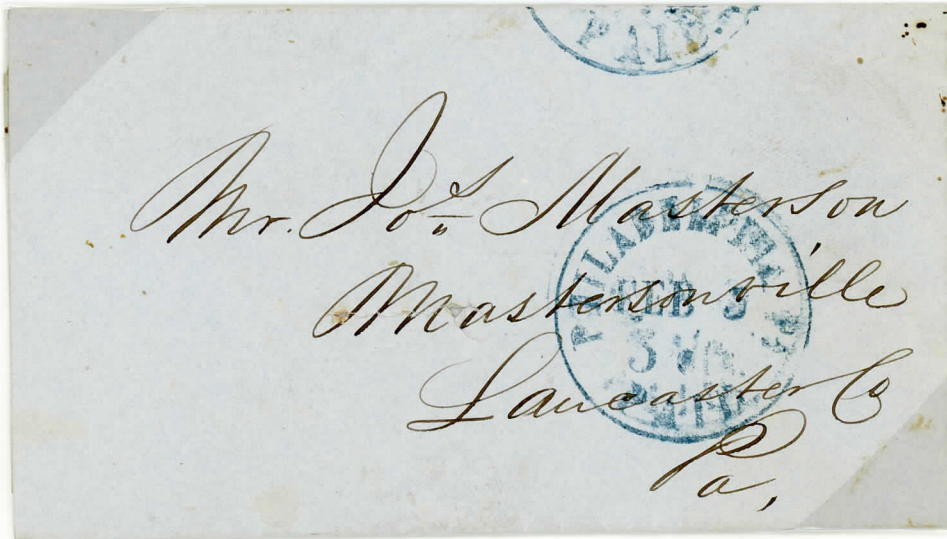 PAID
Mr. Jos. Masterson
Mastersonville
Lancaster Co
Pa,
PHILADELPHIA PA
FEB 3
PAID